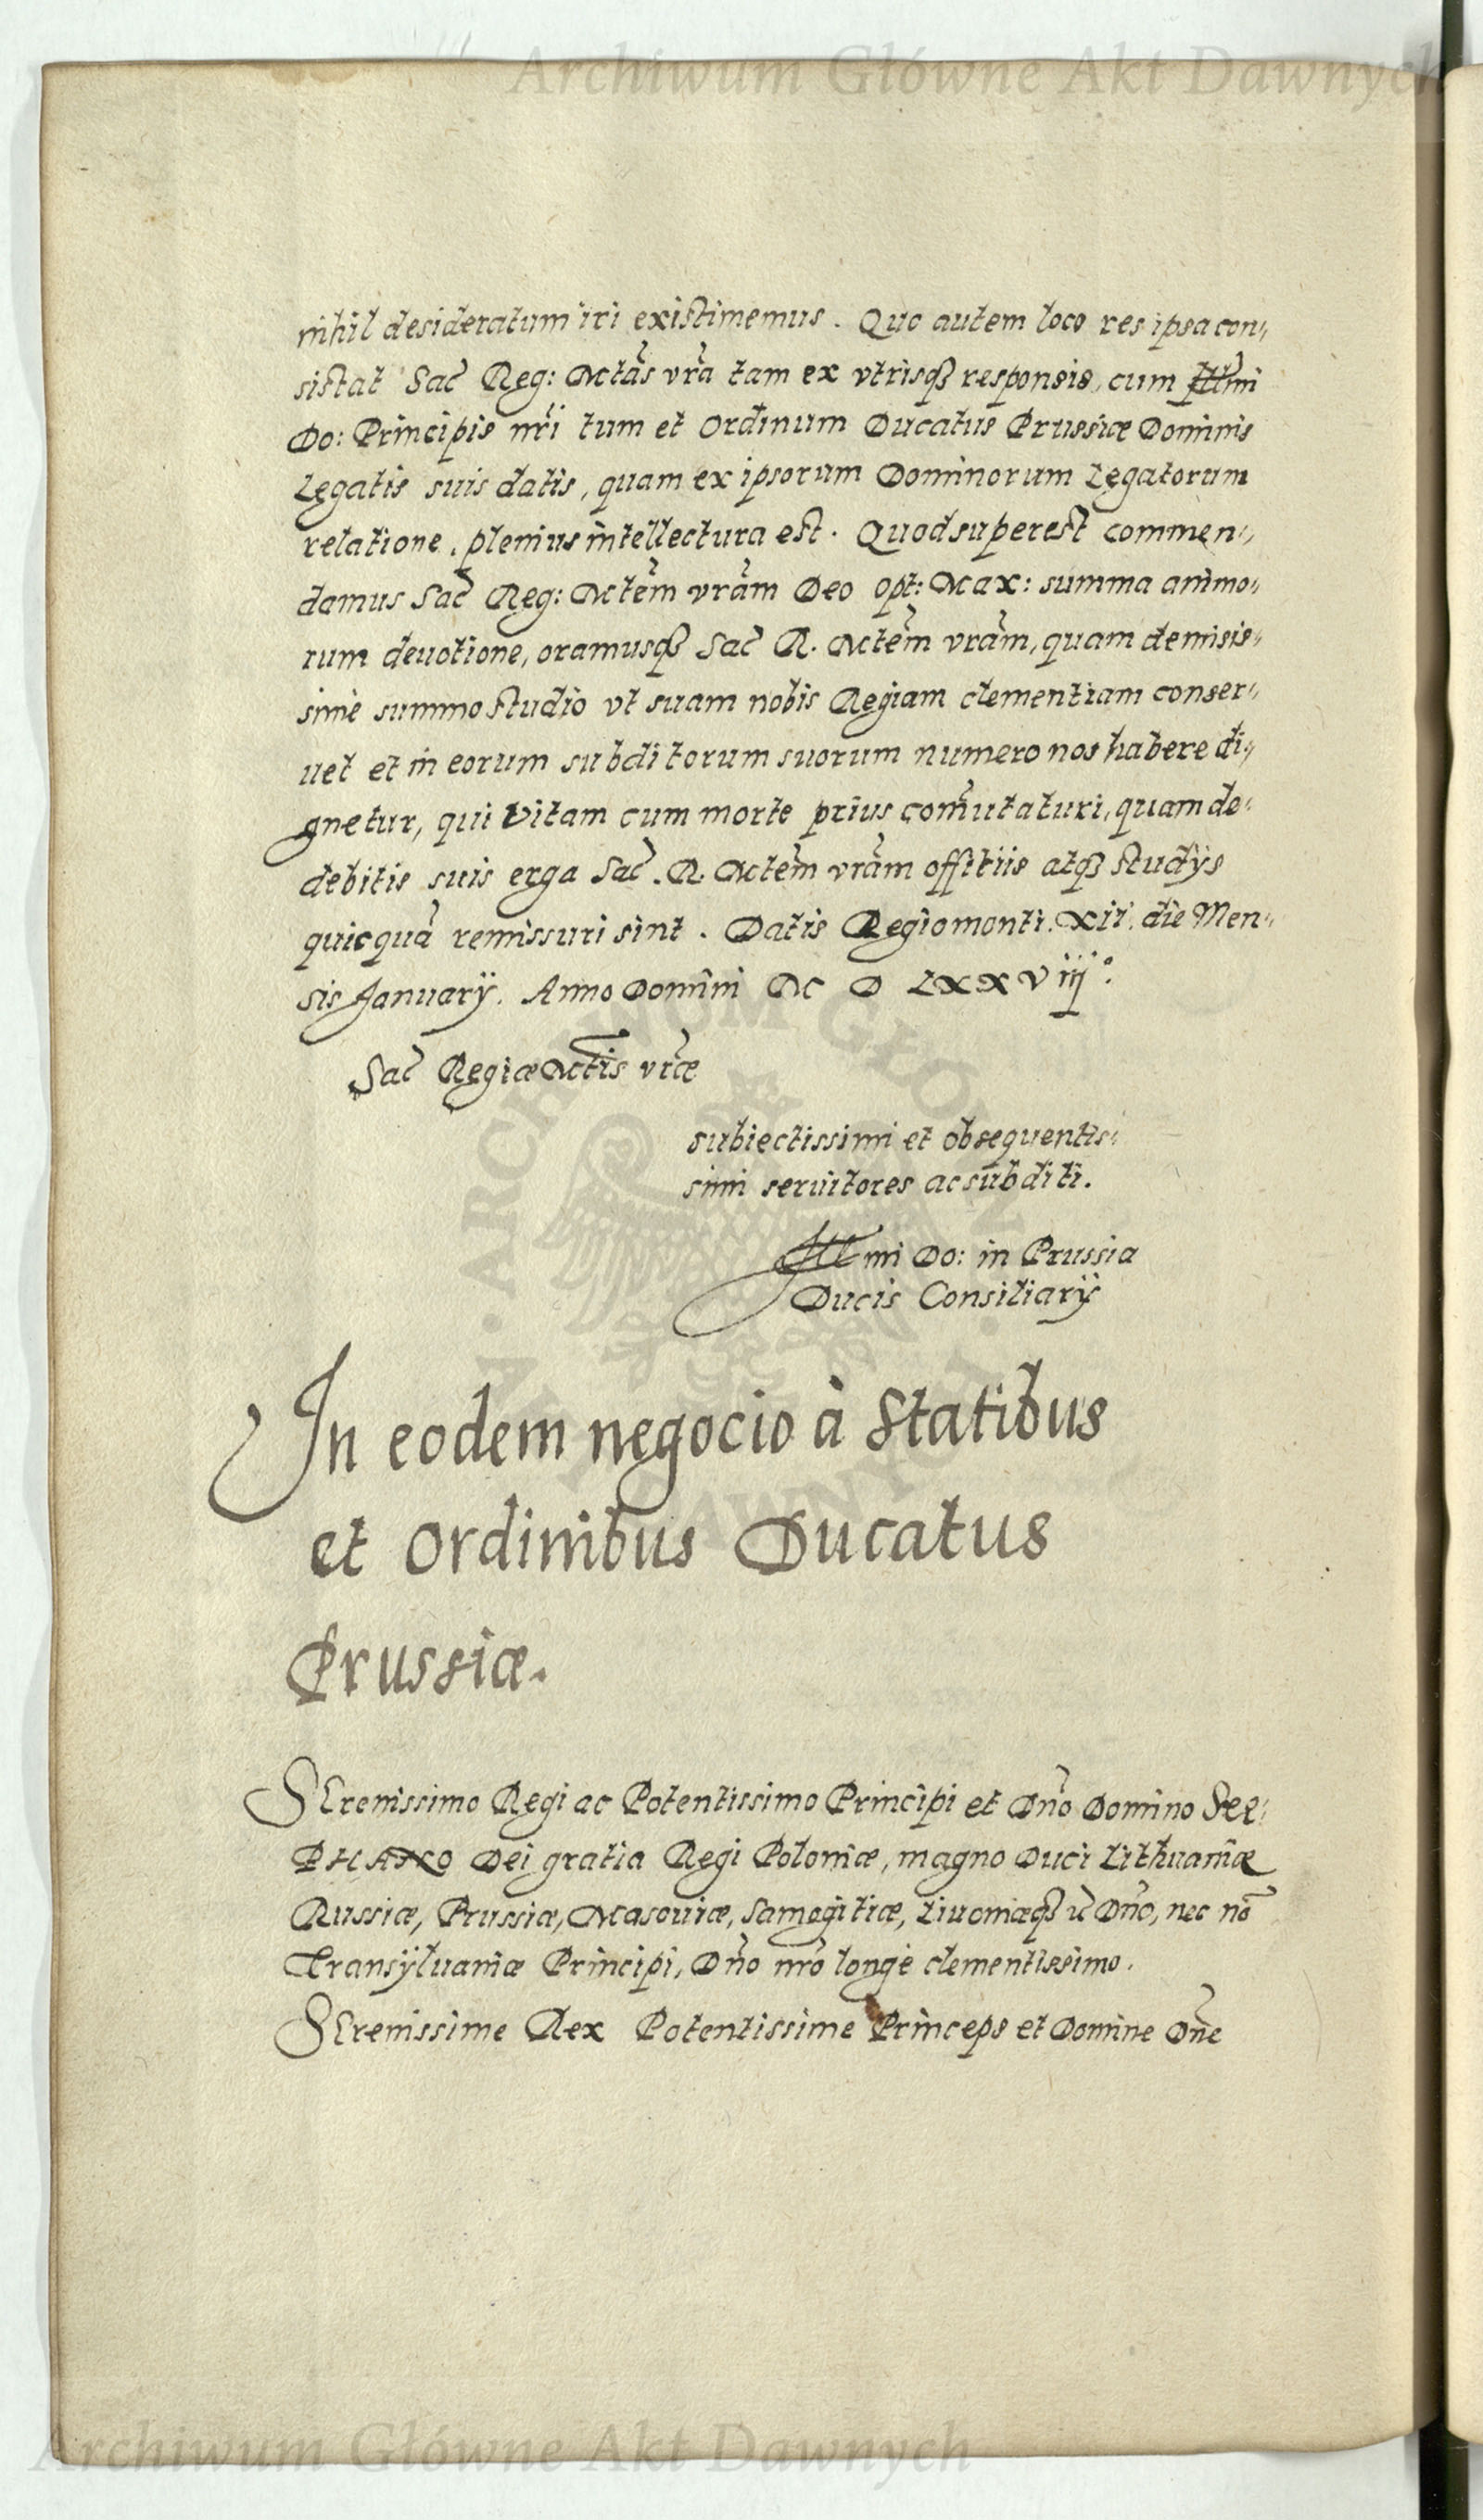 Archiwum Główne Akt Dawnych
nihil desideratum iri existimemus. Quo autem loco res ipsa con„
sistat Sac̃ Reg: Mtãs vrã tam ex vtrisq́ꝫ responsis, cum Illmi
Do: Principis nrĩ tum et Ordinum Ducatus Prussiæ Dominis
Legatis suis datis, quam ex ipsorum Dominorum Legatorum
relatione, plenius intellectura est. Quod superest commen„
damus Sac̃ Reg: Mtẽm vrãm Deo opt: Max: summa animo„
rum deuotione, oramusqꝫ Sac̃ R. Mtẽm vrãm, quam demisis„
sime summo studio vt suam nobis Regiam clementiam conser„
uet et in eorum subditorum suorum numero nos habere di„
gnetur, qui Vitam cum morte prius com̃utaturi, quam de„
debitis suis erga Sac̃. R. Mtẽm vrãm offitiis atqꝫ studÿs
quicquã remissuri sint. Datis Regiomonti. XII. die Men„
sis Januarÿ. Anno Domini M D LXXVIIJ°.
Sac̃ Regiæ Mtis vræ̃
subiectissimi et obsequentis„
simi seruitores ac subditi.
Illmi Do: in Prussia
Ducis Consiliarÿ
In eodem negocio à Statibus
et Ordinibus Ducatus
Prussiæ.
SErenissimo Regi ac Potentissimo Principi et Dño Domino STE„
PHANO Dei gratia Regi Poloniæ, magno Duci Lithuaniæ
Russiæ, Prussiæ, Masouiæ, Samogitiæ, Liuoniæqꝫ &c̃ Dño, nec nõ
Transÿluaniæ Principi, Dño nrõ longè clementissimo.
SErenissime Rex Potentissime Princeps et Domine Dñe
Archiwum Główne Akt Dawnych